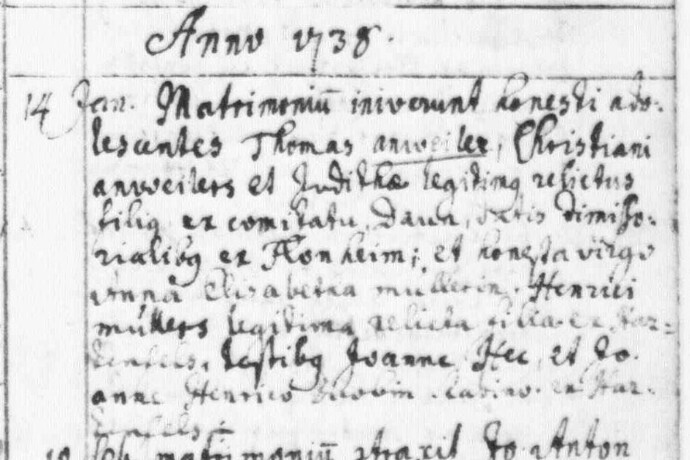 Anno 1738.
14 Jan. Matrimoniū iniverunt honesti ado-
lescentes Thomas anweiler, Christiani
anweilers et Judithæ legitimq relictus
filiq ex comitatu Daun, datis dimisso-
rialibq ex Flonheim; et honesta virgo
Anna Elisabetha müllerin. Henrici
müllers legitima relicta filia ex Har-
tenfels, testibq Joanne Hec, et Jo-
anne Henrico ex Har-
tenfels
Feb. matrimoniū Jo Anton